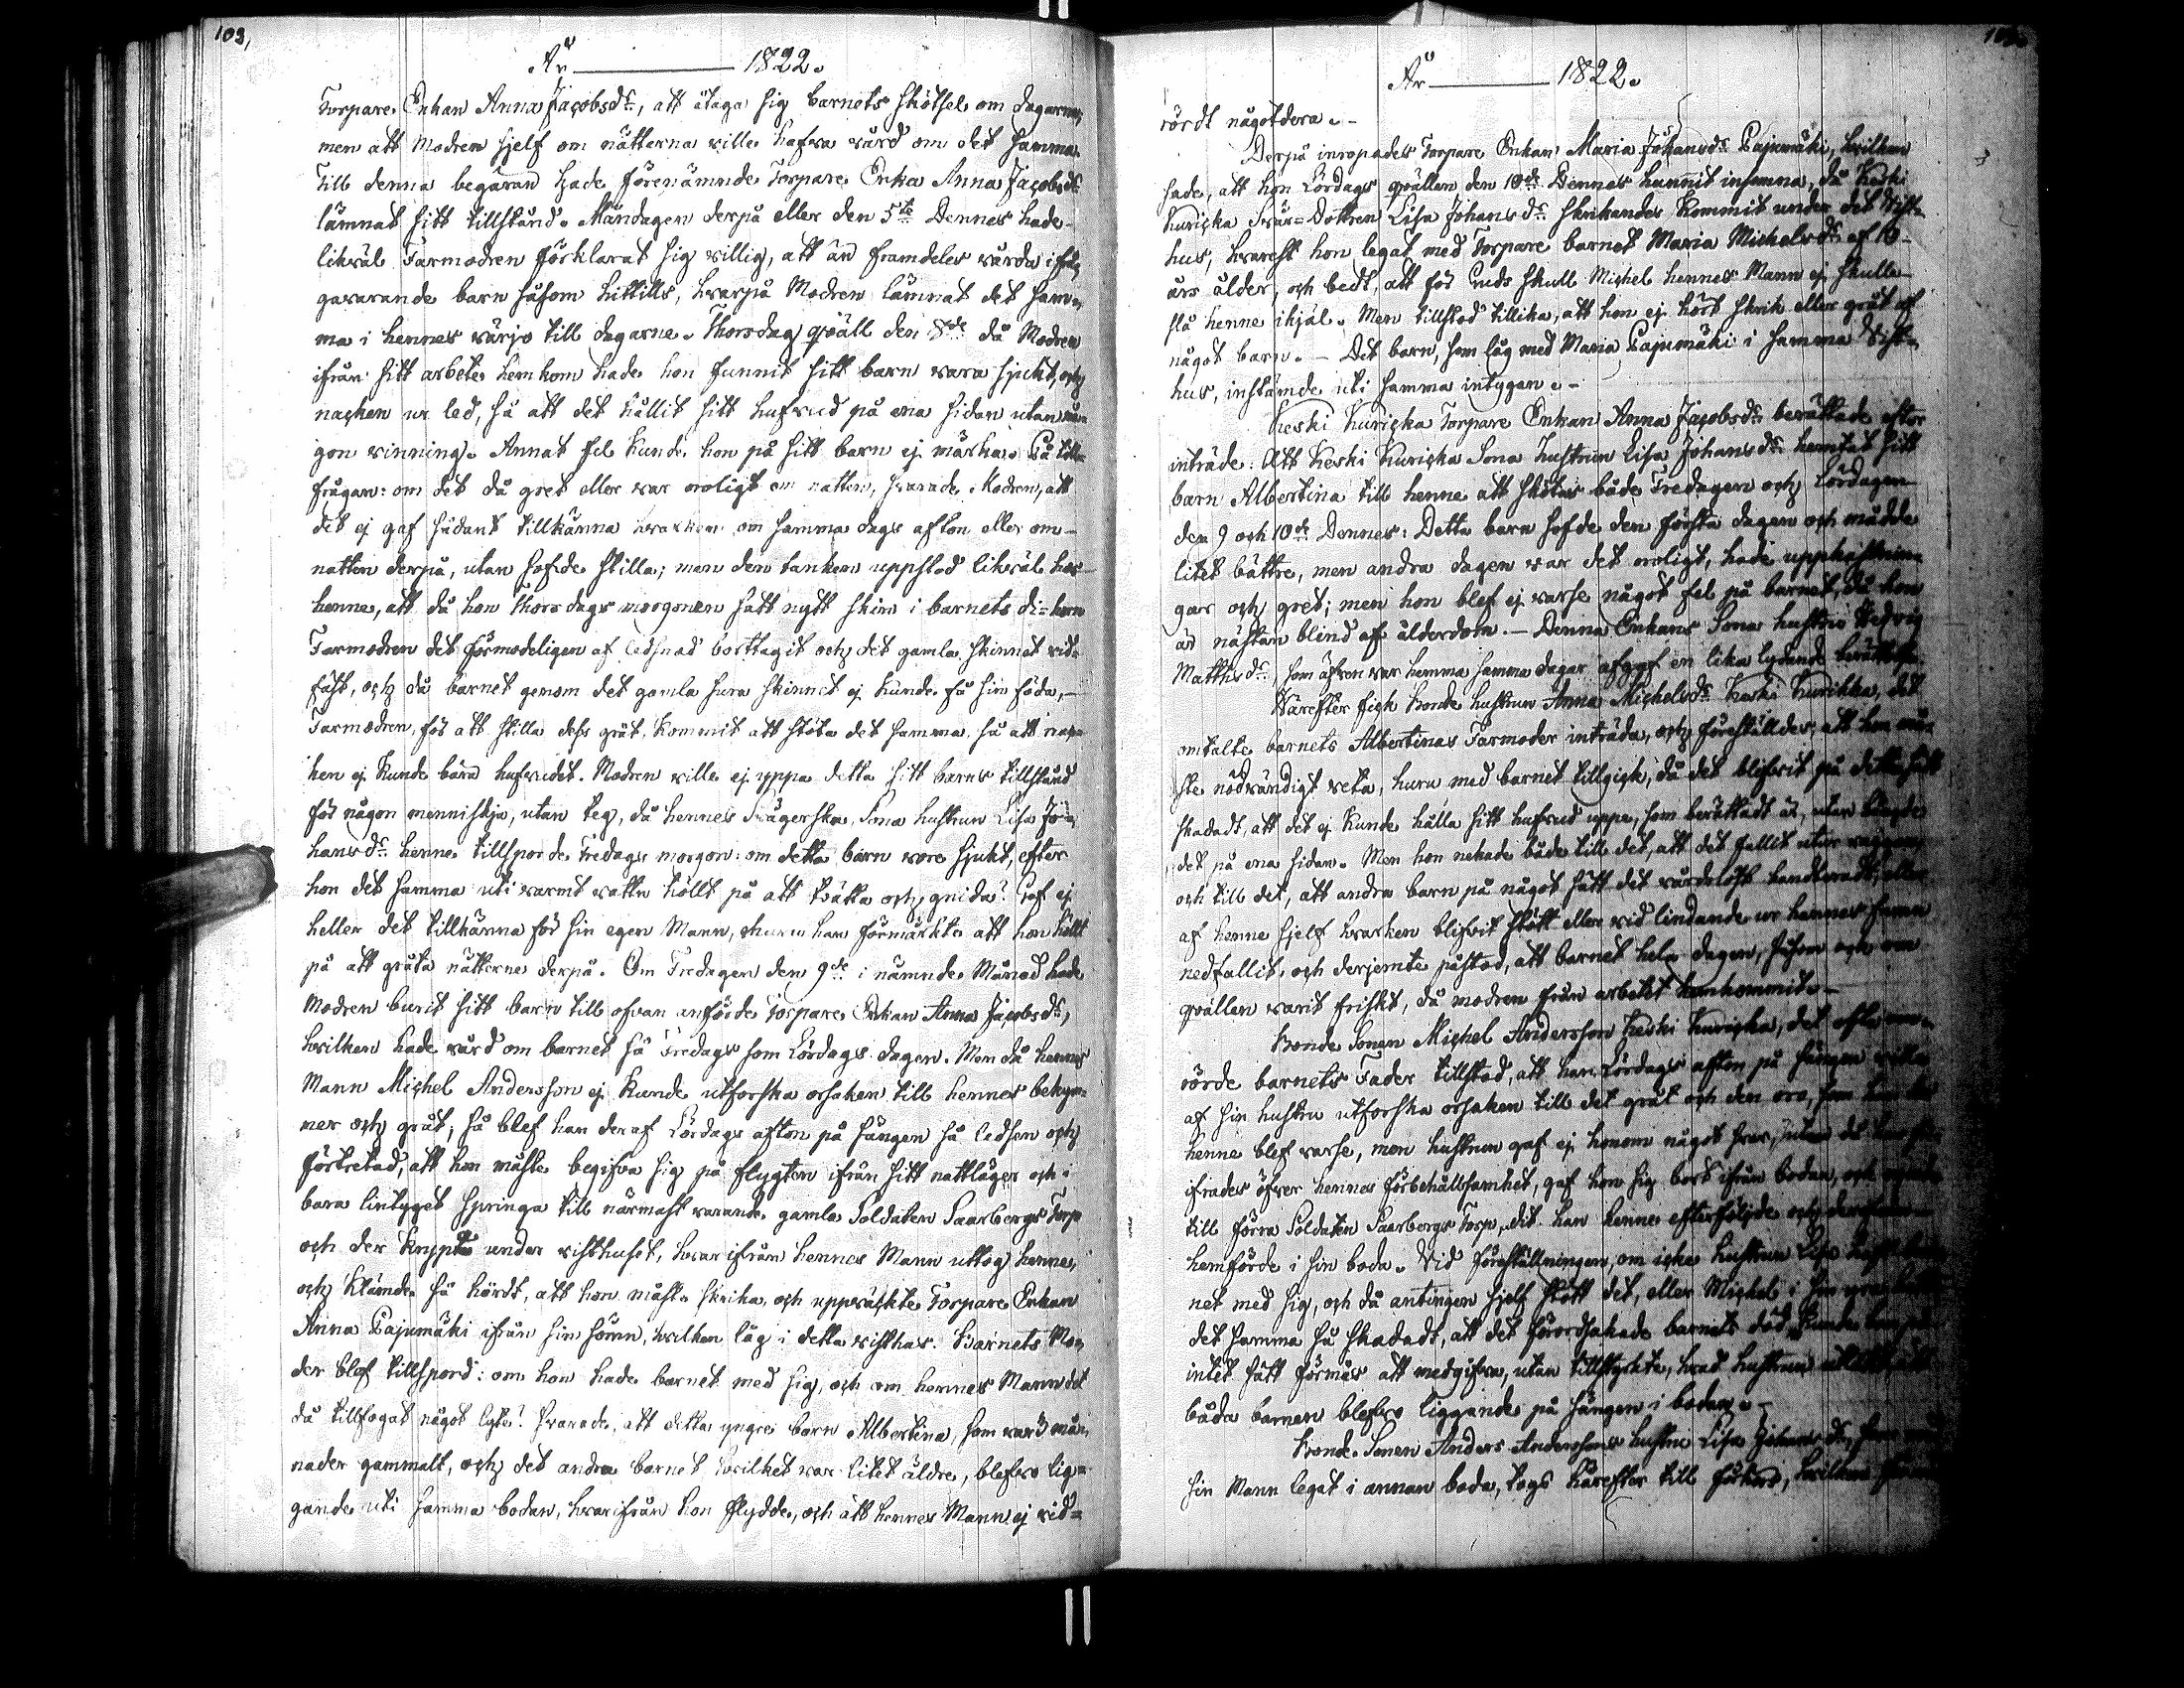 103,
År 1822.
Torpare Enkan Anna Jacobsdr, att åtaga sig barnets skötsel om dagarna,
men att Modren sjelf om nätterna ville hafva vård om det samma.
Till denna begäran hade förenämnde Torpare Enka Anna Jacobsdr
lämnat sitt tillstånd. Måndagen derpå eller den 5te Dennes hade
likväl Farmodren förklarat sig villig, att än framdeles vårda ifrå-
gavarande barn såsom hittills, hvarpå Modren lämnat det sam-
ma i hennes värjo till dagarne. Thorsdag qväll den 8de då Modren
ifrån sitt arbete hemkom hade hon funnit sitt barn vara sjukt, och
nacken ur led, så att det hållit sitt hufvud på ena sidan utan nå-
gon vinning. Annat fel kunde hon på sitt barn ej märka. På till-
frågan: om det då gret eller var oroligt om natten, svarade Modren, att
det ej gaf sådant tillkänna hvarken om samma dags afton eller om
natten derpå, utan sofde stilla; men den tanken uppstod likväl hos
henne, att då hon thorsdags morgonen satt nytt skinn i barnets di-horn
Farmodren det förmodeligen af ledsnad borttagit och det gamla skinnet vid-
fäst, och då barnet genom det gamla sura skinnet ej kunde få sin föda,
Farmodren, för att stilla dess gråt, kommit att stöta det samma, så att nac-
ken ej kunde bära hufvudet. Modren ville ej yppa detta sitt barns tillstånd
för någon menniskja, utan teg, då hennes Svägerska Sona hustrun Lisa Jo-
hansdr henne tillsporde Fredags morgon: om detta barn vore sjukt, efter
hon det samma uti varmt vatten höllt på att tvätta och gnida? Gaf ej
heller det tillkänna för sin egen Mann, ehuru han förmärkte att hon höllt
på att gråta nätterne derpå. Om Fredagen den 9de i nämnde Månad hade
Modren burit sitt barn till ofvan anförde Torpare Enkan Anna Jacobsdr,
hvilken hade vård om barnet så Fredags som Lördags dagen. Men då hennes
Mann Michel Andersson ej kunde utforska orsaken till hennes bekym-
mer och gråt, så blef han deraf Lördags afton på sängen så ledsen och
förtretad, att hon måste begifva sig på flygten ifrån sitt nattläger och i
bara lintyget springa till närmast varande gamla Soldaten Saarbergs Torp
och der krypte under visthuset, hvar ifrån hennes Mann uttog henne,
och klämde så hårdt, att hon måste skrika, och uppväckte Torpare Enkan
Anna Pajumäki ifrån sin sömn, hvilken låg i detta visthus. Barnets Mo-
der blef tillspord: om hon hade barnet med sig, och om hennes Mann det
då tillfogat något lyte? svarade, att detta yngre barn Albertina, som var 3 må-
nader gammalt, och det andra barnet hvilket var litet äldre, blefvo lig-
gande uti samma bodan, hvarifrån hon flydde, och att hennes Mann ej vid-
År 1822.
rördt någotdera.
Derpå inropades Torpare Enkan Maria Johansdr Pajumäki, hvilken
sade, att hon Lördags qvällen den 10de Dennes hunnit insomna, då Keski
Kuricka Svär-Dottren Lisa Johansdr skrikandes kommit under det Vist-
hus, hvarest hon legat med Torpare barnet Maria Michelsdr af 10
års ålder, och bedt, att för Guds skull Michel hennes Mann ej skulle
slå henne ihjäl. Men tillstod tillika, att hon ej hört skrik eller gråt af
något barn. Det barn, som låg med Maria Pajumäki i samma Vist-
hus, instämde uti samma intygan.
Keski Kuricka Torpare Enkan Anna Jacobsdr berättade efter
inträde: Att Keski Kuricka Sona Hustrun Lisa Johansdr hemtat sitt
barn Albertina till henne att skötas både Fredagen och Lördagen
den 9 och 10de Dennes: Detta barn sofde den första dagen och mådde
litet bättre, men andra dagen var det oroligt, hade upphostnin-
gar och gret; men hon blef ej varse något fel på barnet, då hon
är nästan blind af ålderdom. Denna Enkans Sona hustru Hedvig
Matthsdr, som äfven var hemma samma dagar afgaf en lika lydande berättelse.
Därefter fick Bonde hustrun Anna Michelsdr Keski Kurikka, det
omtalte barnets Albertinas Farmoder inträda, och föreställdes, att hon mås-
ste nödvändigt veta, huru med barnet tillgick, då det blifvit på detta sätt
skadadt, att det ej kunde hålla sitt hufvud uppe, som berättadt är, utan
det på ena sidan. Men hon nekade både till det, att det fallit utur vaggan,
och till det, att andra barn på något sätt det vårdslöst handterat, eller
af henne sjelf hvarken blifvit stött eller vid lindande ur hennes famn
nedfallit, och derjemte påstod, att barnet hela dagen, såsom och om
qvällen varit friskt, då modren från arbetet hemkommit.
Bonde Sonen Michel Andersson Keski Kuricka, det
rörde barnets Fader tillstod, att han Lördags afton på sängen ville
af sin hustru utforska orsaken till det gråt och den oro, som han
henne blef varse, men hustrun gaf ej honom något svar, utan då
ifrades öfver hennes förbehållsamhet, gaf hon sig bort ifrån bodan, och
till förra Soldaten Saarbergs Torp, dit han henne efterföljde och
hemförde i sin boda. Vid föreställningen, om icke hustrun Lisa
net med sig, och då antingen sjelf stött det, eller Michel i sin
det samma så skadadt, att det förorsakade barnets död, kunde
intet sätt förmås att medgifva, utan tillstyrkte, hvad hustrun
båda barnen blefvo liggande på sängen i bodan.
Bonde Sonen Anders Anderssons hustru Lisa Johansdr,
sin Mann legat i annan boda, togs härefter till förhör, hvilken